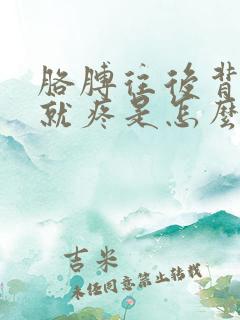 胳膊往后背
就疼是怎么
吉米
未经同意禁止转载